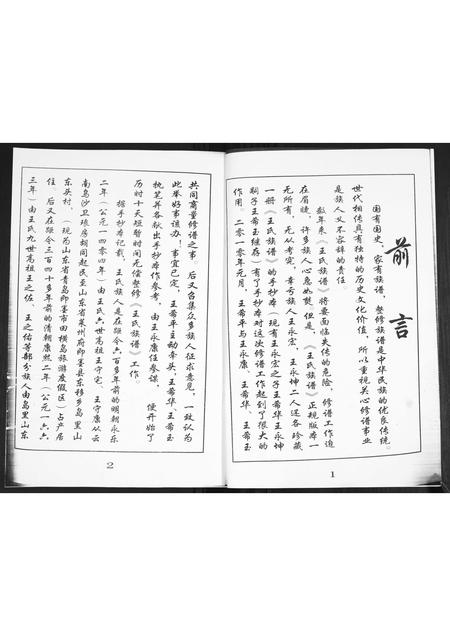 前言
国有国史，家有族谱，整修族谱是中华民族的优良传统。
世代相传具有独特的历史文化价值，所以重视关心修谱事业
是族人义不容辞的责任
数年来《王氏族谱》将要面临失传的危险，修谱工作迫
在眉睫，许多族人心急如焚，但是，《王氏族谱》正规版本一
无所有，无从考究，幸亏族人王永宏、王永坤二人还各珍藏
一册《王氏族谱》的手抄本（现有王永宏之子王希华王永坤
嗣子王希玉继存）有了手抄本对这次修谱工作起到了很大的
作用。二零一零年元月，王希平与王永康、王希华、王希玉
1
共同商量修谱之事，后又召集众多族人征求意见，一致认为
此举好事该办！事宜已定，王希平主动牵头，王希华、王希玉
执笔并各献出手抄本作参考，由王永康任参谋，便开始了
历时十天短暂时间无偿整修《王氏族谱》工作。
据手抄本记载，王氏族人是在距今六百多年前的明朝永乐
二年（公元一四零四年）由王氏六世高祖王守宅、王守康从云
南乌沙卫琅房胡同起民至山东省莱州府即墨县东乡岛里山
东头村，（现为山东省青岛即墨市田横岛旅游度假区）占产居
住，后又在距今三百四十多年前的清朝康熙二年（公元一六六
三年）由王氏九世高祖王之佐、王之佑等部分族人由岛里山东
2